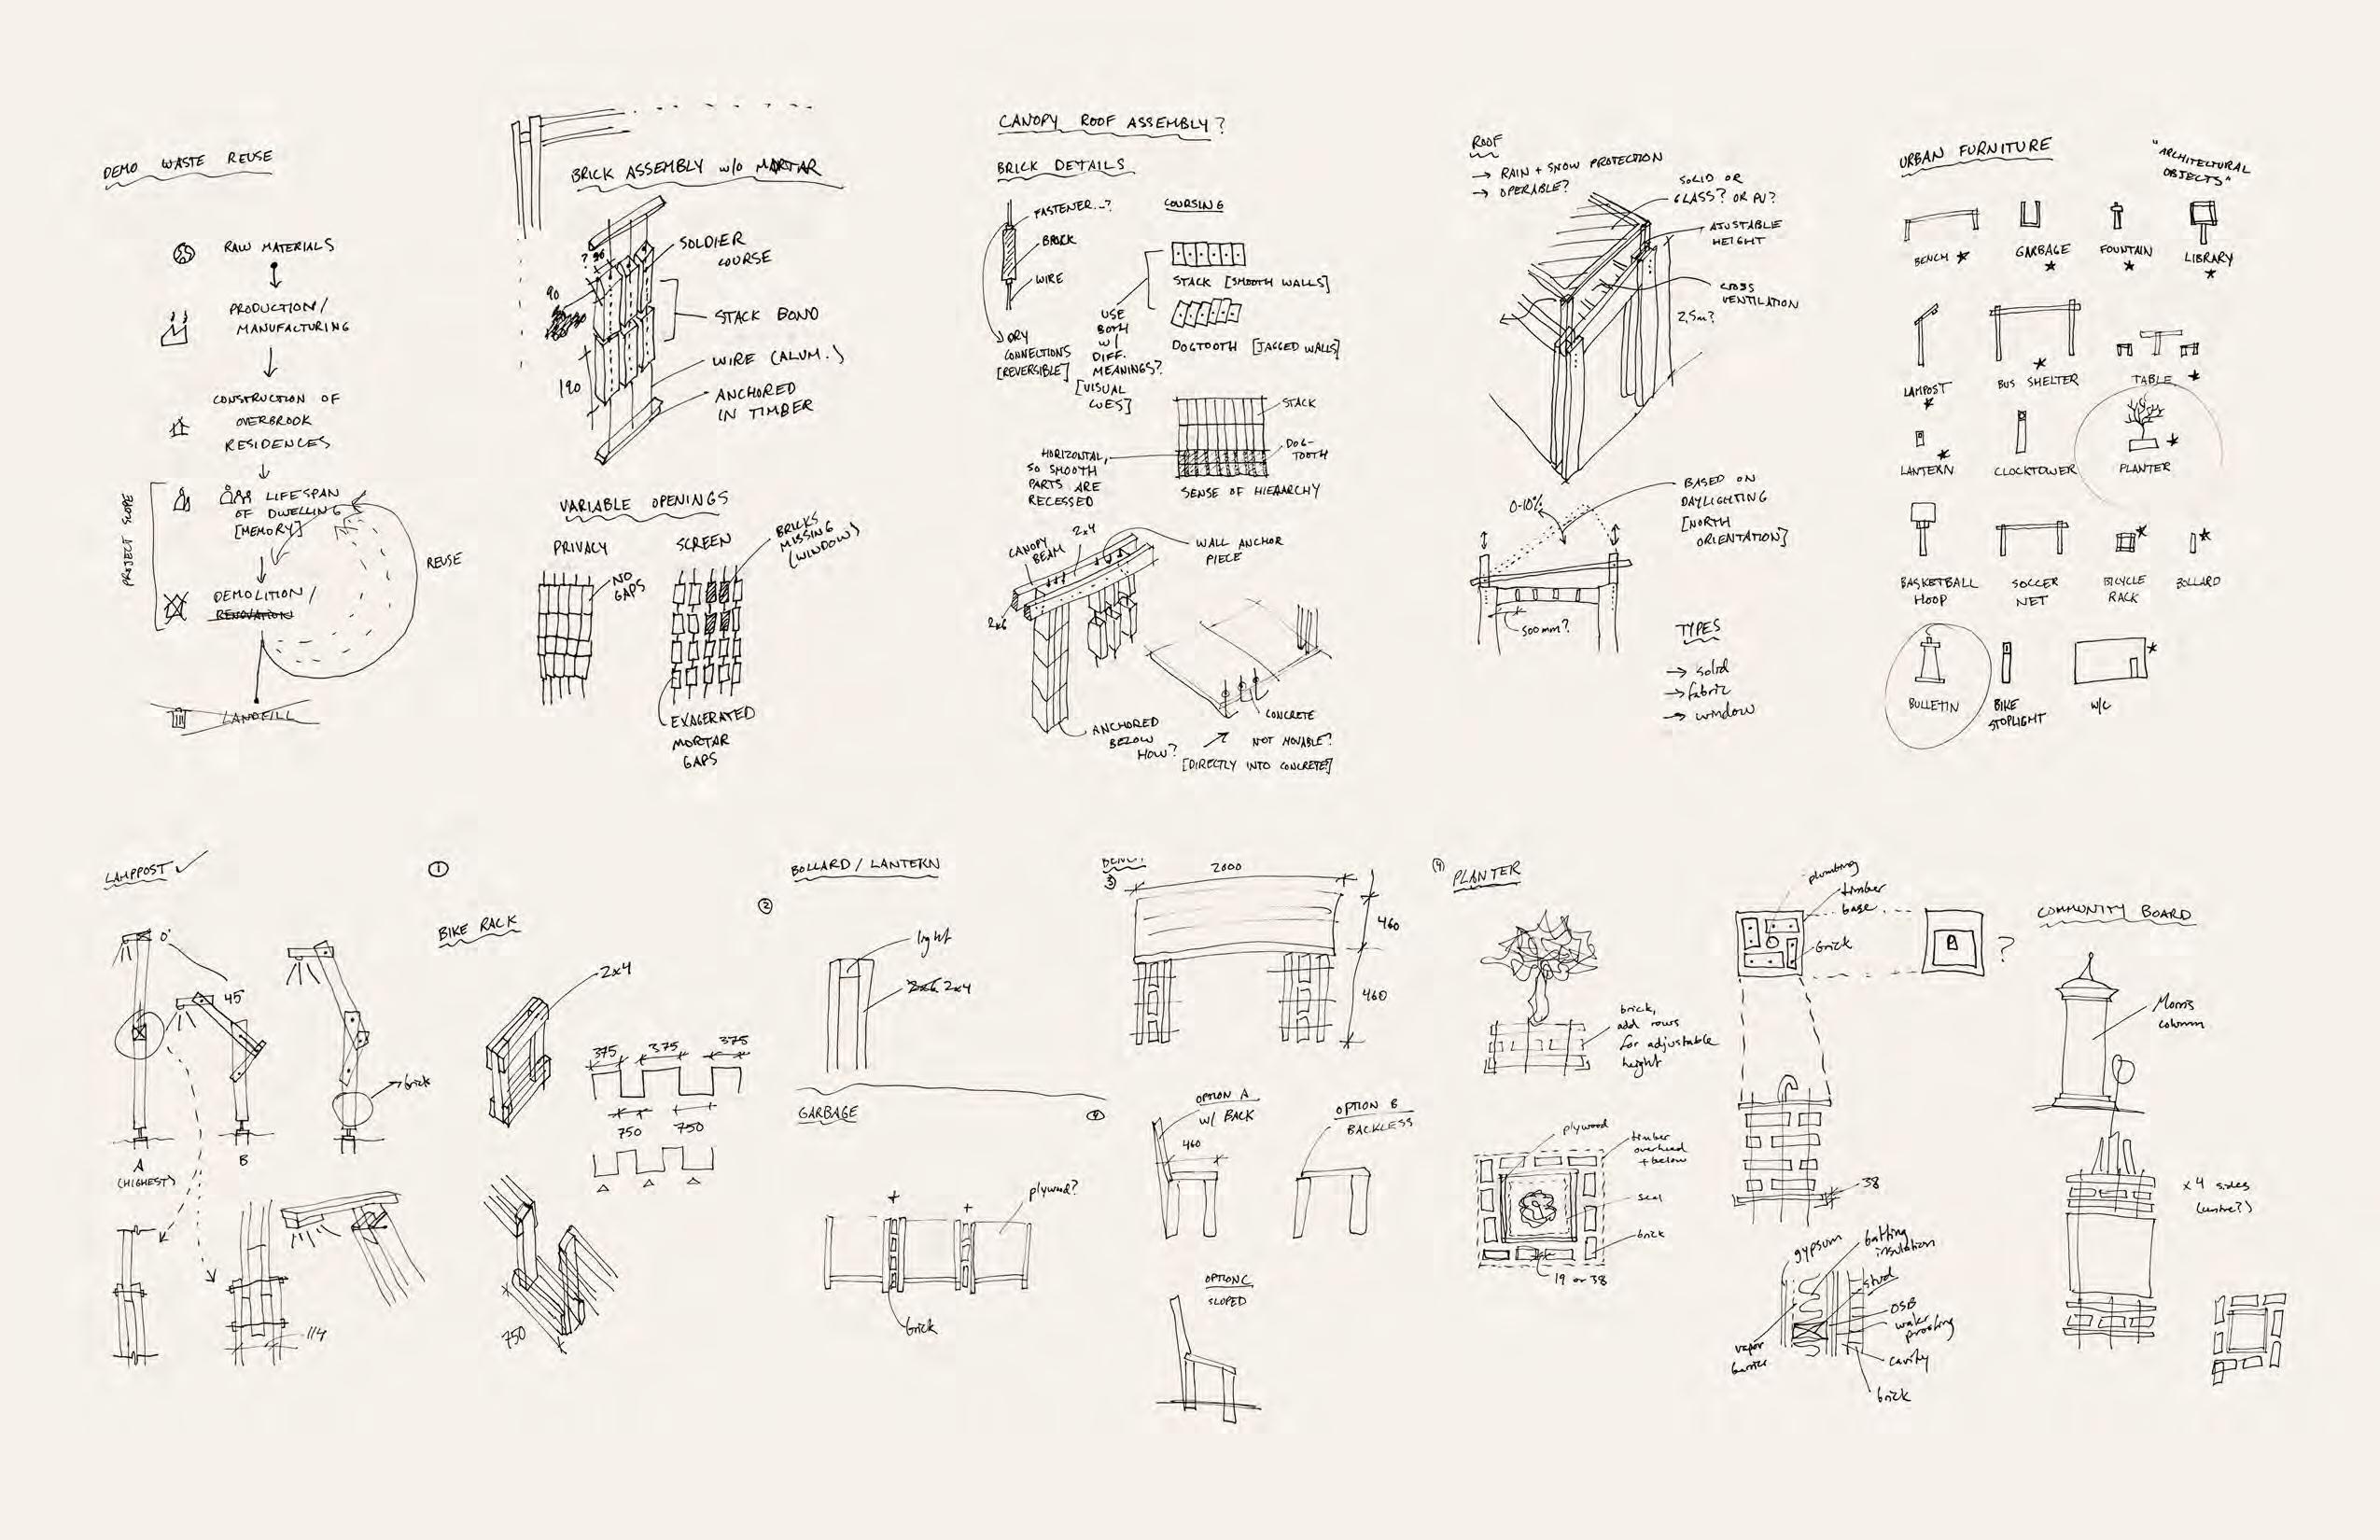 DEMO WASTE REUSE
RAW MATERIALS
PRODUCTION/
MANUFACTURING
CONSTRUCTION OF
OVERBROOK
RESIDENCES
PROJECT SCOPE
LIFESPAN
OF DWELLING
[MEMORY]
REUSE
DEMOLITION/
RENOVATION
LANDFILL
BRICK ASSEMBLY W/O MORTAR
? 90
SOLDIER
COURSE
90
STACK BOND
WIRE (ALUM.)
190
ANCHORED
IN TIMBER
VARIABLE OPENINGS
PRIVACY
NO
GAPS
SCREEN
BRICKS
MISSING
(WINDOW)
EXAGERATED
MORTAR
GAPS
CANOPY ROOF ASSEMBLY?
BRICK DETAILS
FASTENER..?
BRICK
WIRE
DRY
CONNECTIONS
[REVERSIBLE]
COURSING
STACK [SMOOTH WALLS]
DOGTOOTH [JAGGED WALLS]
USE
BOTH
W/
DIFF.
MEANINGS?
[VISUAL
CUES]
STACK
DOG-
TOOTH
HORIZONTAL,
SO SMOOTH
PARTS ARE
RECESSED
SENSE OF HIEARCHY
CANOPY
BEAM
2x4
WALL ANCHOR
PIECE
2x6
ANCHORED
BELOW
HOW?
CONCRETE
NOT MOVABLE?
[DIRECTLY INTO CONCRETE]
ROOF
→ RAIN + SNOW PROTECTION
→ OPERABLE?
SOLID OR
GLASS? OR PV?
AJUSTABLE
HEIGHT
CROSS
VENTILATION
2.5m?
0-10%
BASED ON
DAYLIGHTING
[NORTH
ORIENTATION]
500mm?
TYPES
→ solid
→ fabric
→ window
URBAN FURNITURE
"ARCHITECTURAL
OBJECTS"
BENCH ★
GARBAGE ★
FOUNTAIN ★
LIBRARY ★
LAMPOST ★
BUS SHELTER ★
TABLE ★
LANTERN ★
CLOCKTOWER
PLANTER ★
BASKETBALL
HOOP
SOCCER
NET
BICYCLE
RACK ★
BOLLARD ★
BULLETIN
BIKE
STOPLIGHT
W/C ★
LAMPPOST ✓
0°
45
A
(HIGHEST)
B
brick
114
①
BIKE RACK
2x4
375 375 375
750 750
750
②
BOLLARD / LANTERN
light
2x6 2x4
GARBAGE
plywood?
brick
BENCH
③
2000
460
460
OPTION A
W/ BACK
460
OPTION B
BACKLESS
OPTION C
SLOPED
④ PLANTER
brick,
add rows
for adjustable
height
plywood
timber
overhead
+ below
seal
brick
19 or 38
plumbing
timber
base
brick
?
38
gypsum
batting
insulation
stud
OSB
water
proofing
cavity
brick
vapor
barrier
COMMUNITY BOARD
Morris
column
x 4 sides